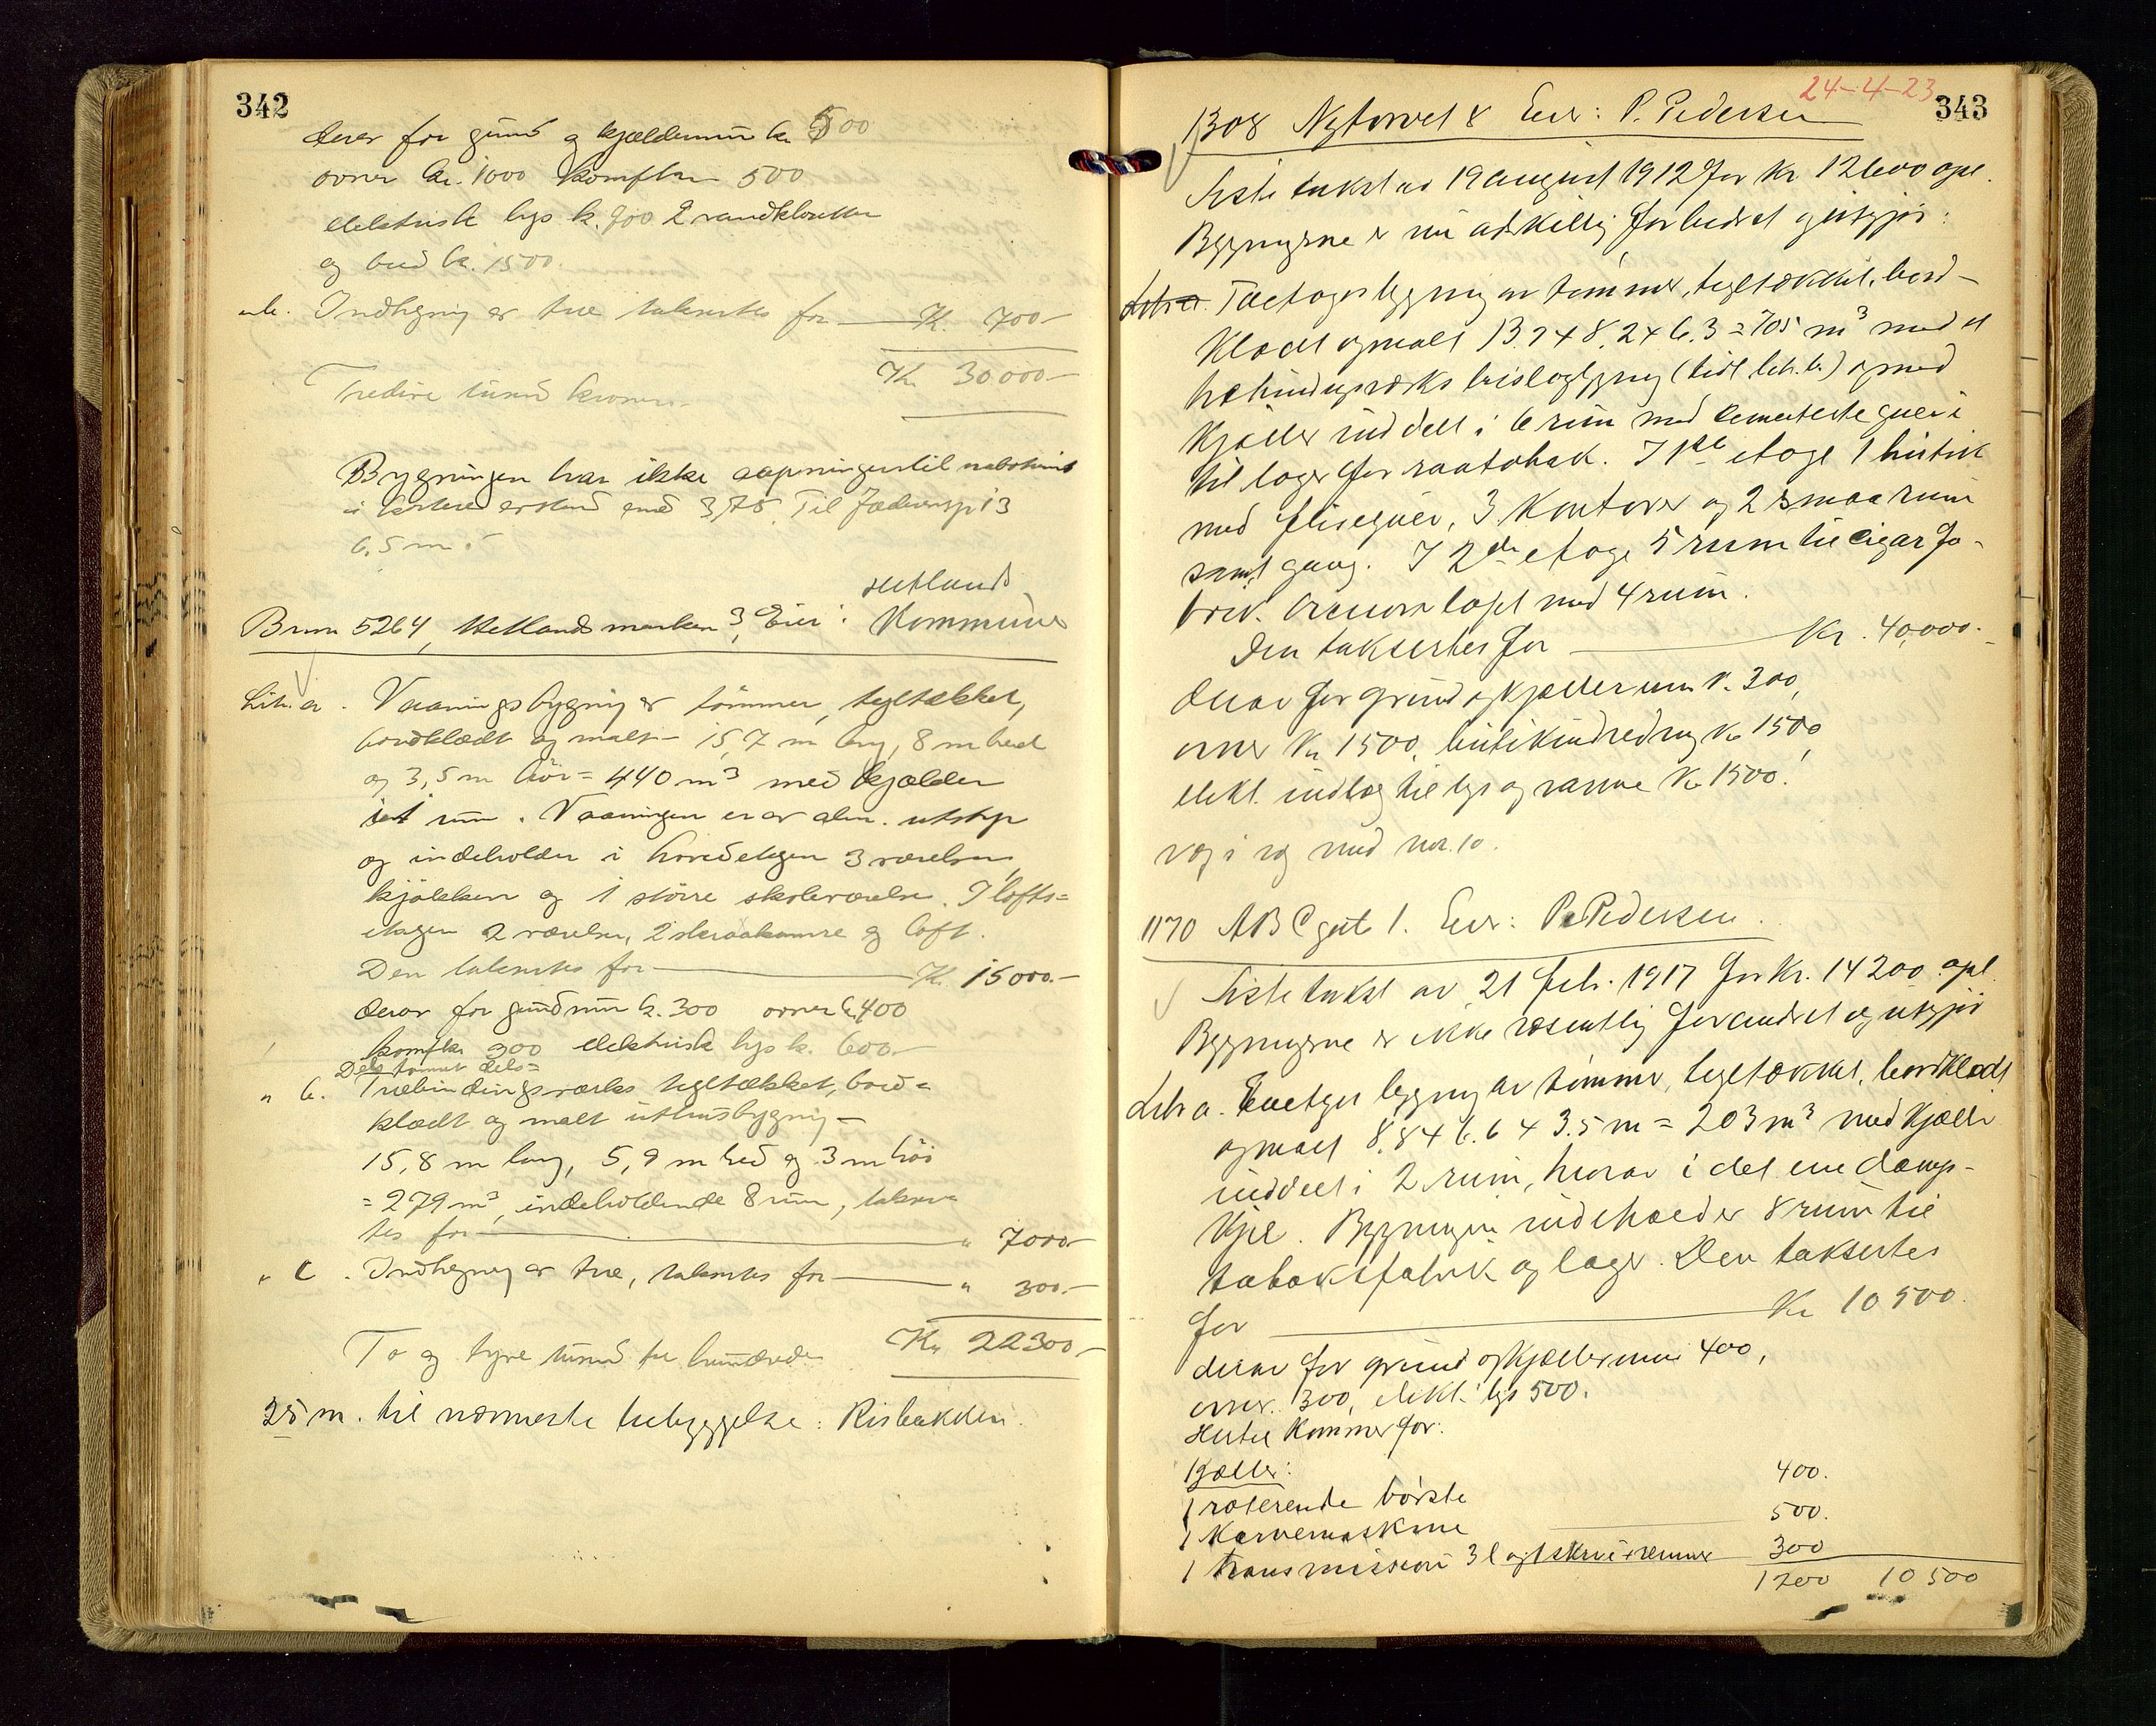 342
derav for grund og kjældermur kr. 500
ovner kr. 1000 komfur 500
elektrisk lys kr. 900 2 vandklosetter
og bad kr. 1500.
" b. Indhegning av træ takseres for — Kr. 700.-
Kr. 30000.-
Tredive tusind kroner.-
Bygningen har ikke aapninger til nabohus
6,5 m.
Hetlands
Brnr 5264, Hetlandsmarken 3, Eier: Kommune
Litr. a. Vaaningsbygning av tømmer, tegltækket,
bordklædt og malt - 15,7 m lang, 8 m bred
og 3,5 m høi = 440 m³ med kjælder
i et rum. Vaaningen er av alm. utstyr
og indeholder i hovedetagen 3 værelser,
kjøkken og 1 større skoleværelse. I lofts=
etagen 2 værelser, 2 skraakamre og loft.
Den takseres for — Kr. 15000.-
derav for grundmur kr. 300 ovner kr. 400
komfur 300 elektrisk lys kr. 600.-
Dels tømmer dels=
" b. Træbindingsverks tegltækket, bord=
klædt og malt uthusbygning -
15,8 m lang, 5,9 m bred og 3 m høi
= 279 m³, indeholdende 8 rum, takse=
res for — " 7000.-
" c. Indhegning av træ, takseres for — " 300.-
Kr. 22300.-
To og tyve tusind tre hundrede
25 m. til nærmeste trebyggelse: Risbakken.
24-4-23
343
1308 Nytorvet 8 Eier: P. Pedersen
Siste takst av 19 august 1912 for Kr 12600 opl.
Bygningerne er nu adskillig forbedret og utgjør:
Litr a. Toetages bygning av tømmer, tegltækket, bord-
klædt og malt 13.7 x 8.2 x 6.3 = 705 m³ med et
træbindingsværks bislagbygning (tidl. litr. b.) og med
kjæller inddelt i 6 rum med cementerte gulv i
til lager for raatobak. I 1ste etage 1 butik
med flisegulv, 3 kontorer og 2 smaa rum
samt gang. I 2den etage 5 rum til cigarfa-
brik. Ovenover loft med 4 rum.
Den takseres for — Kr. 40,000.-
derav for grund og kjællermur kr. 300,
ovner Kr 1500, butikindredning Kr 1500,
elekt. indlæg til lys og varme Kr 1500.
væg i væg med nr. 10.
1170 ABC gate 1. Eier: P. Pedersen.
Siste takst av 21 feb. 1917 for Kr. 14200 opl.
Bygningerne er ikke væsentlig forandret og utgjør
Litr a. Enetages bygning av tømmer, tegltækket, bordklædt
og malt 8.8 x 6.6 x 3.5 m = 203 m³ med kjæller
inddelt i 2 rum, hvorav i det ene damp-
kjel. Bygningen indeholder 8 rum til
tobaksfabrik og lager. Den takseres
for — Kr 10500.
derav for grund og kjællermur 400,
ovner 300, elekt. lys 500.
Hertil kommer for:
Kjæller:
1 roterende børste 400.
1 Karvemaskine 500.
1 transmission 3 l og 1 skrive+remmer 300
1200 10500